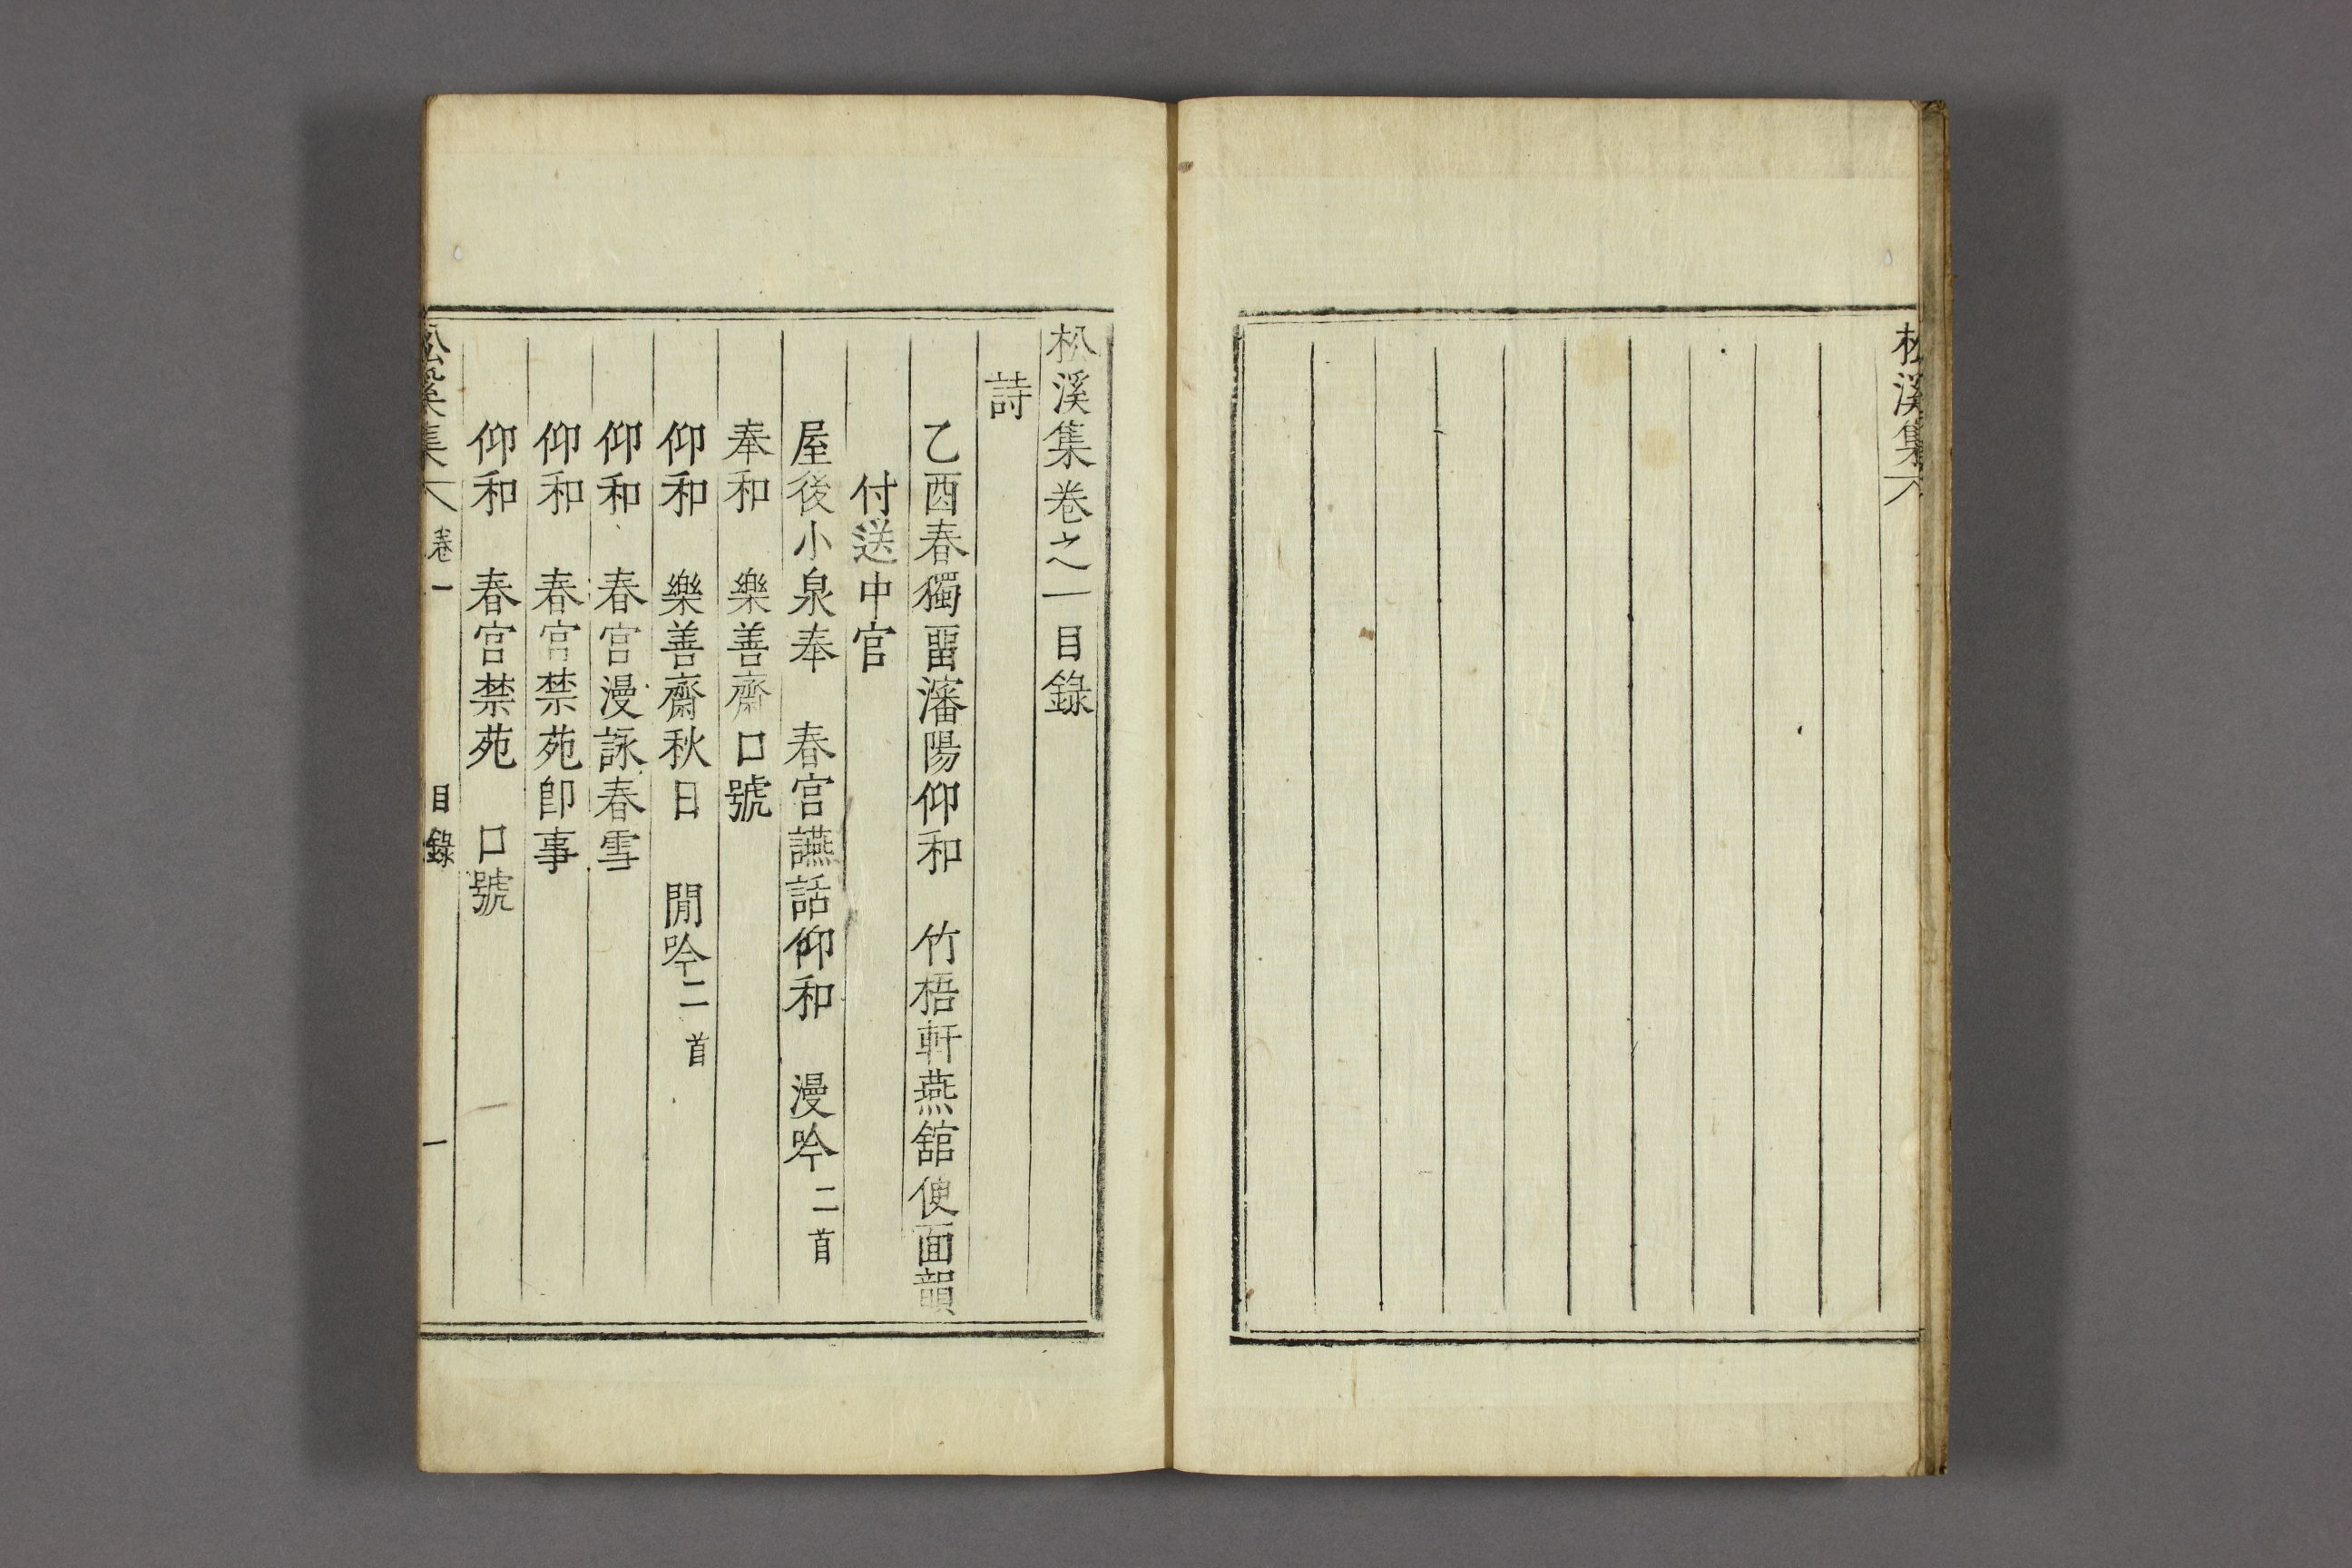 松溪集
松溪集卷之一目錄
詩
乙酉春獨畱瀋陽仰和　竹梧軒燕舘便面韻
付送中官
屋後小泉奉　春宮讌話仰和　漫吟二首
奉和　樂善齋口號
仰和　樂善齋秋日　閒吟二首
仰和　春宮漫詠春雪
仰和　春宮禁苑卽事
仰和　春宮禁苑　口號
松溪集　卷一　目錄　一